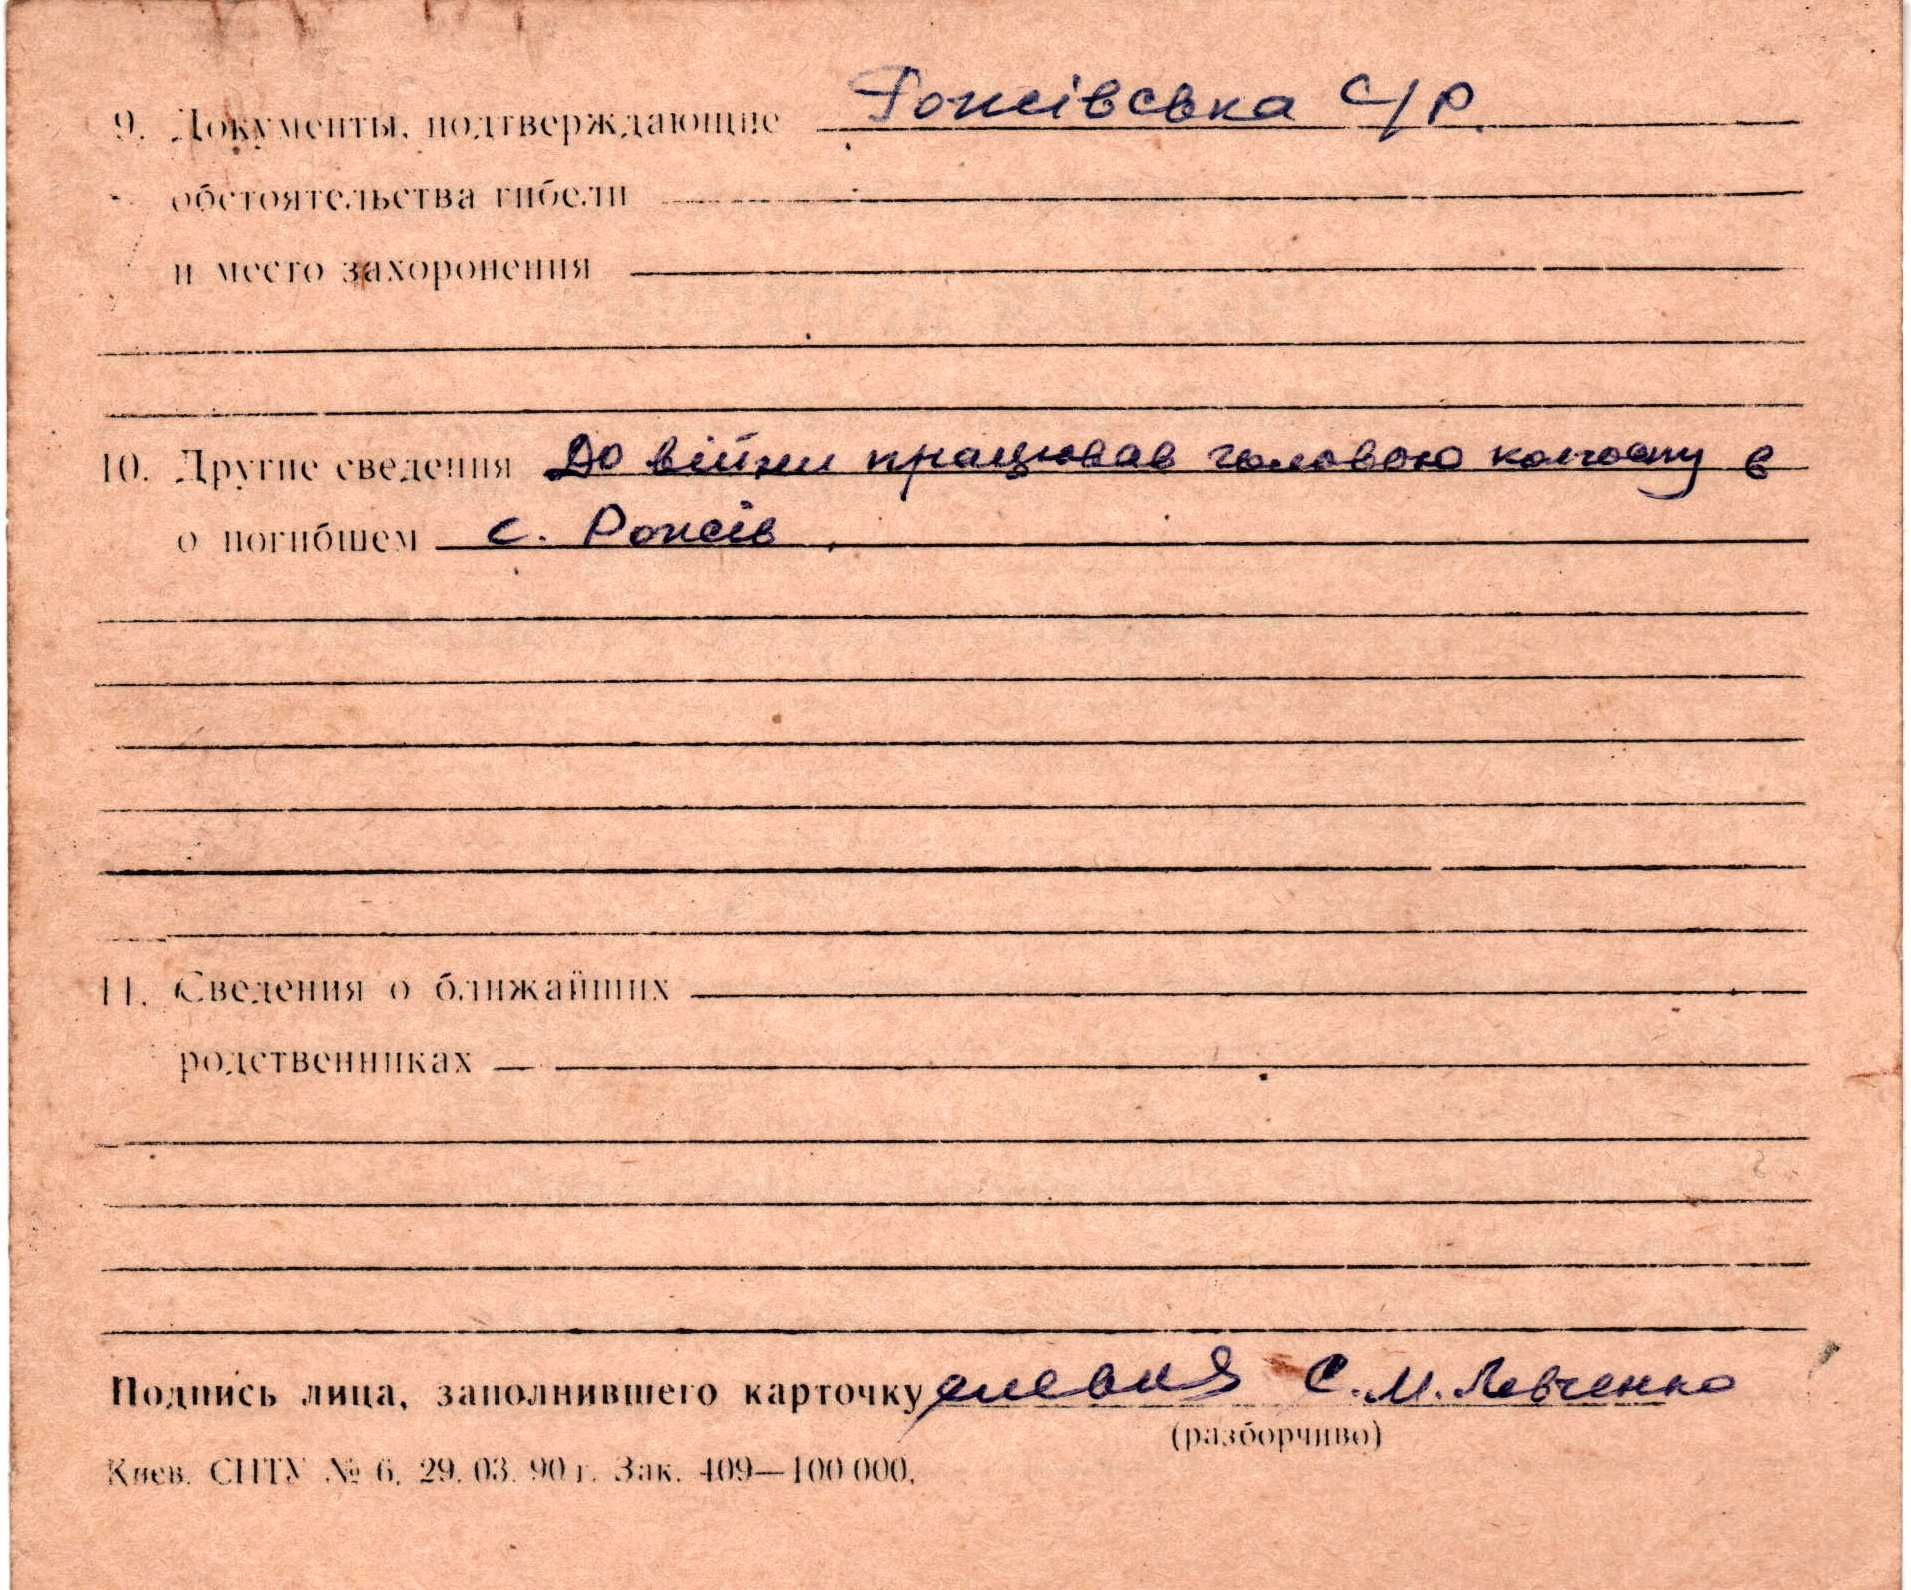 9. Документы, подтверждающие Рожівська с/р.
обстоятельства гибели
и место захоронения
10. Другие сведения До війни працював головою колгоспу в
о погибшем с. Рожів.
11. Сведения о ближайших
родственниках
Подпись лица, заполнившего карточку С. М. Левченко
(разборчиво)
Киев. СПТУ № 6. 29. 03. 90 г. Зак. 409—100 000.